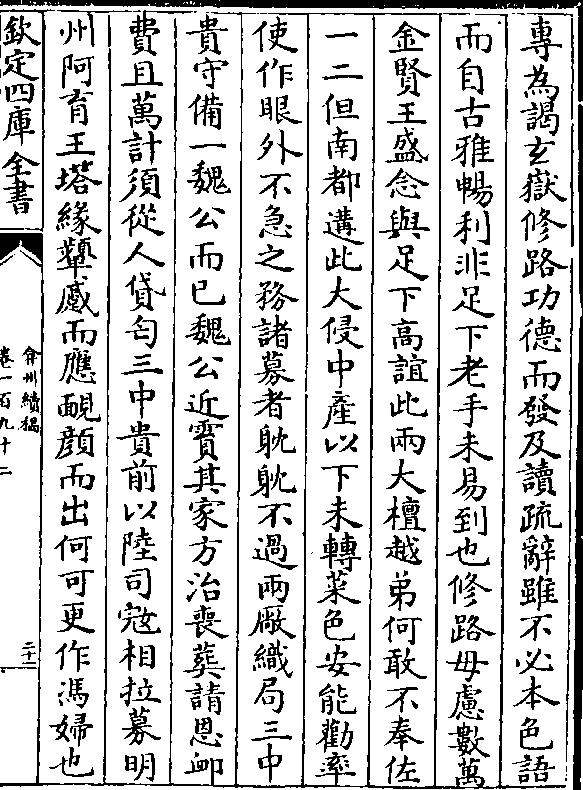 專為謁玄嶽修路功德而發及讀疏辭雖不必本色語
而自古雅暢利非足下老手未易到也修路毋慮數萬
金賢王盛念與足下高誼此兩大檀越弟何敢不奉佐
一二但南都遘此大侵中產以下未轉菜色安能勸率
使作眼外不急之務諸募者眈眈不過兩厰織局三中
貴守備一魏公而已魏公近賓其家方治喪葬請恩卹
費且萬計須從人貸匄三中貴前以陸司宼相拉募明
州阿育王塔緣顰蹙而應靦顔而出何可更作馮婦也
欽定四庫全書
弇州續稿
卷一百九十二
二十二